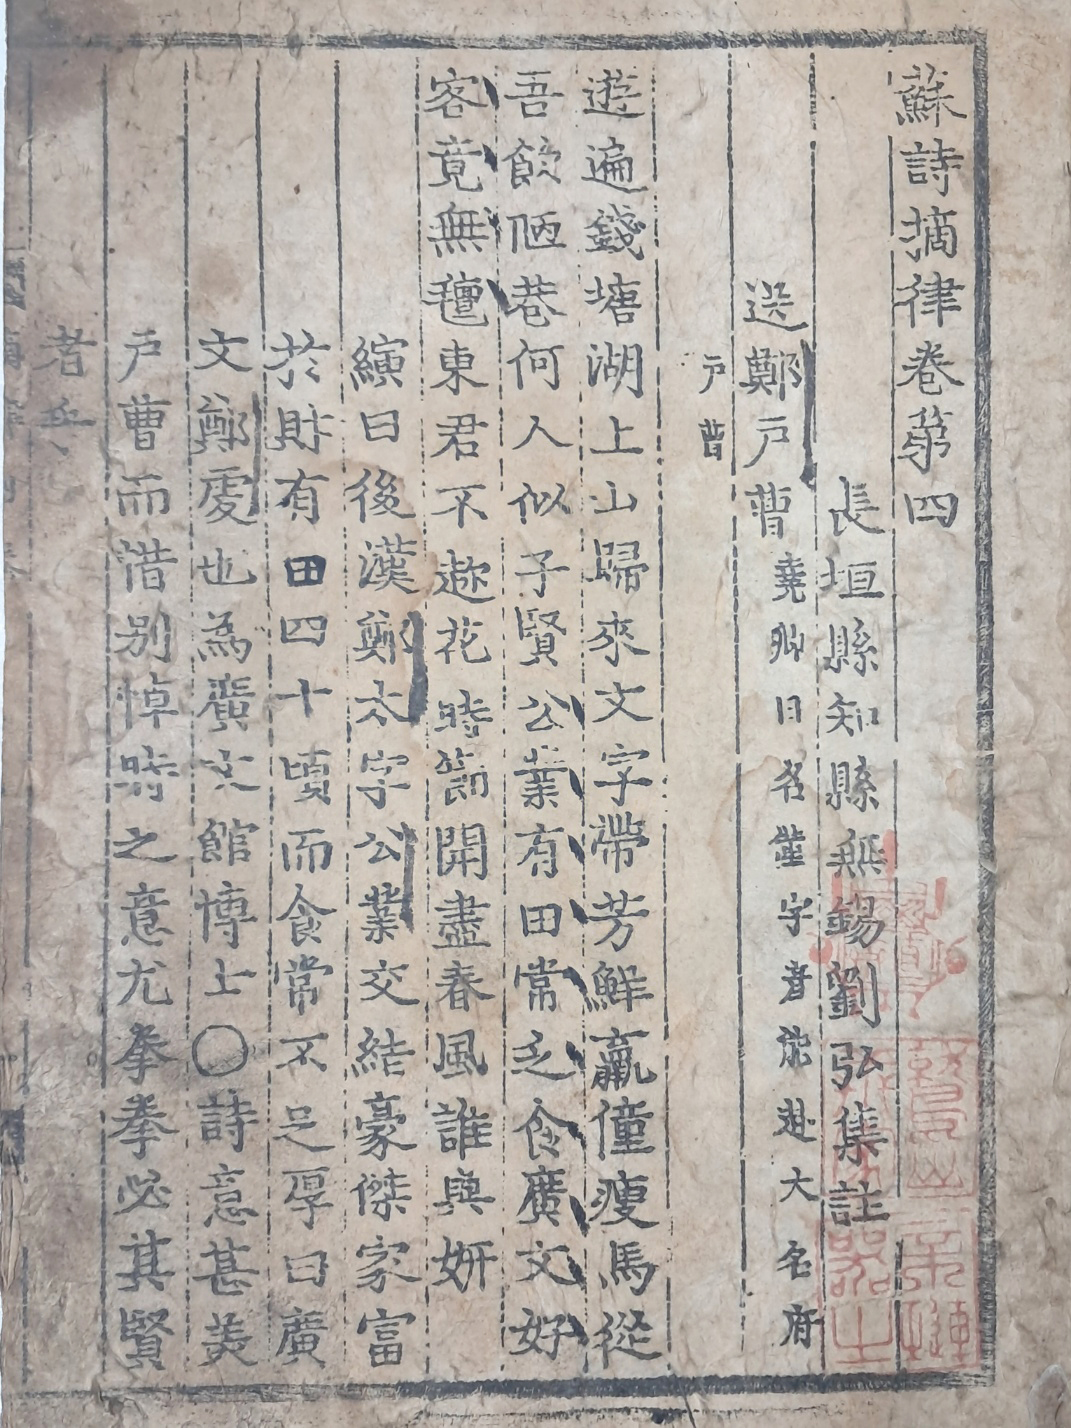 蘇詩摘律卷第四
長垣縣知縣無錫劉弘集註
送鄭戶曹
堯卿曰名僅字彦能赴大名府
戶曹
遊遍錢塘湖上山歸來文字帶芳鮮羸僮瘦馬從
吾飲陋巷何人似子賢公業有田常乏食廣文好
客竟無氊東君不趂花時節開盡春風誰與妍
縯曰後漢鄭太字公業交結豪傑家富
於財有田四十頃而食常不足厚曰廣
文鄭虔也為廣文館博士〇詩意甚美
戶曹而惜別悼時之意尤拳拳必其賢
者